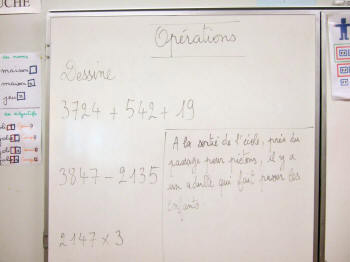 Opérations
Dessine
3724 + 542 + 19
3847 - 2135
2147 x 3
A la sortie de l'école, près du
passage pour piétons, il y a
un adulte qui fait passer les
enfants.
maison
maison
jeu